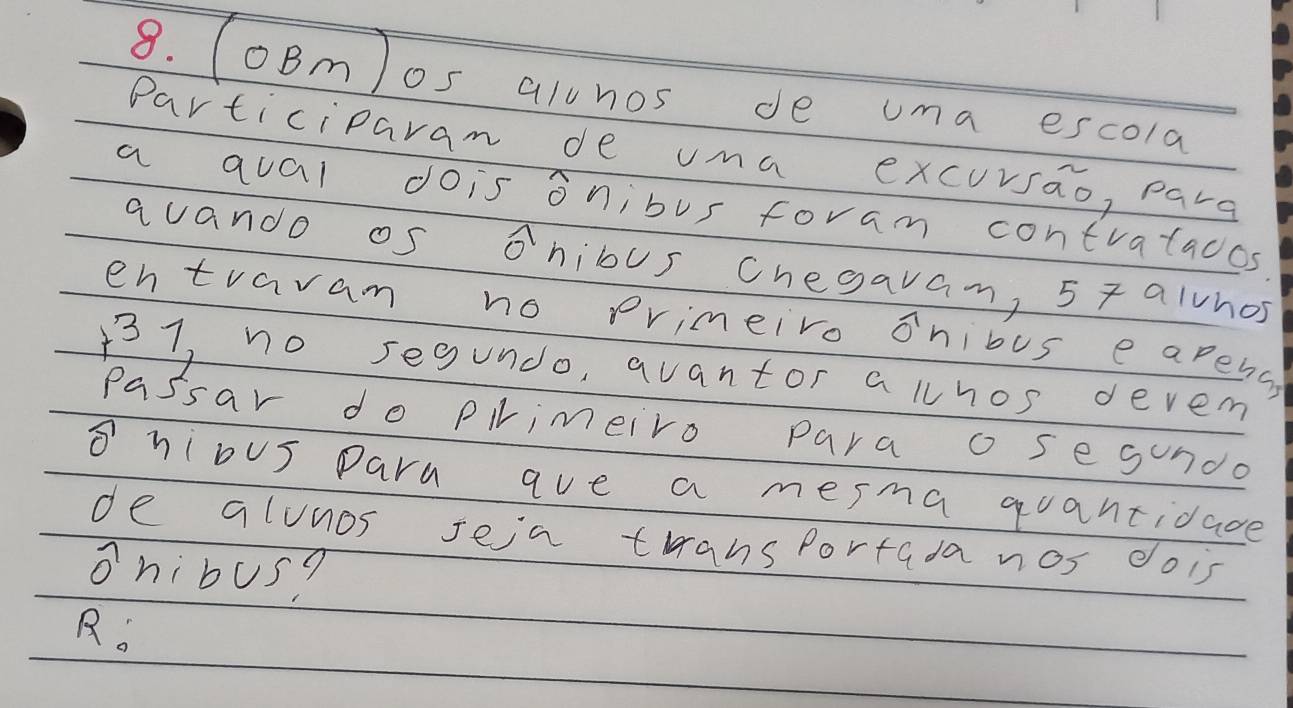 8. (OBM) os alunos de uma escola
Participaram de uma excursão, para
a qual dois ônibus foram contratados.
quando os ônibus chegaram, 57 alunos
entraram no Primeiro ônibus e apenas
31, no segundo. quantos alunos devem
Passar do primeiro para o segundo
ônibus para que a mesma quantidade
de alunos seja transportada nos dois
ônibus?
R: